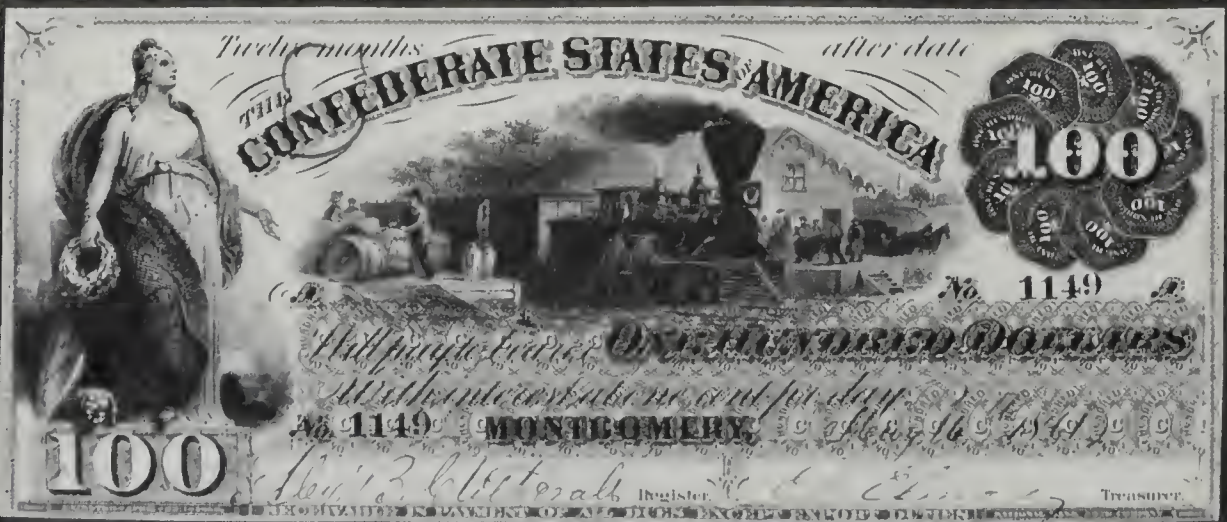 Twelve months after date
THE CONFEDERATE STATES OF AMERICA
100
No. 1149 A
Will pay to bearer ONE HUNDRED DOLLARS
With interest at one cent per day
No. 1149 MONTGOMERY, May 16 1861
100
Alex. B. Clitherall Register. Treasurer.
RECEIVABLE IN PAYMENT OF ALL DUES EXCEPT EXPORT DUTIES